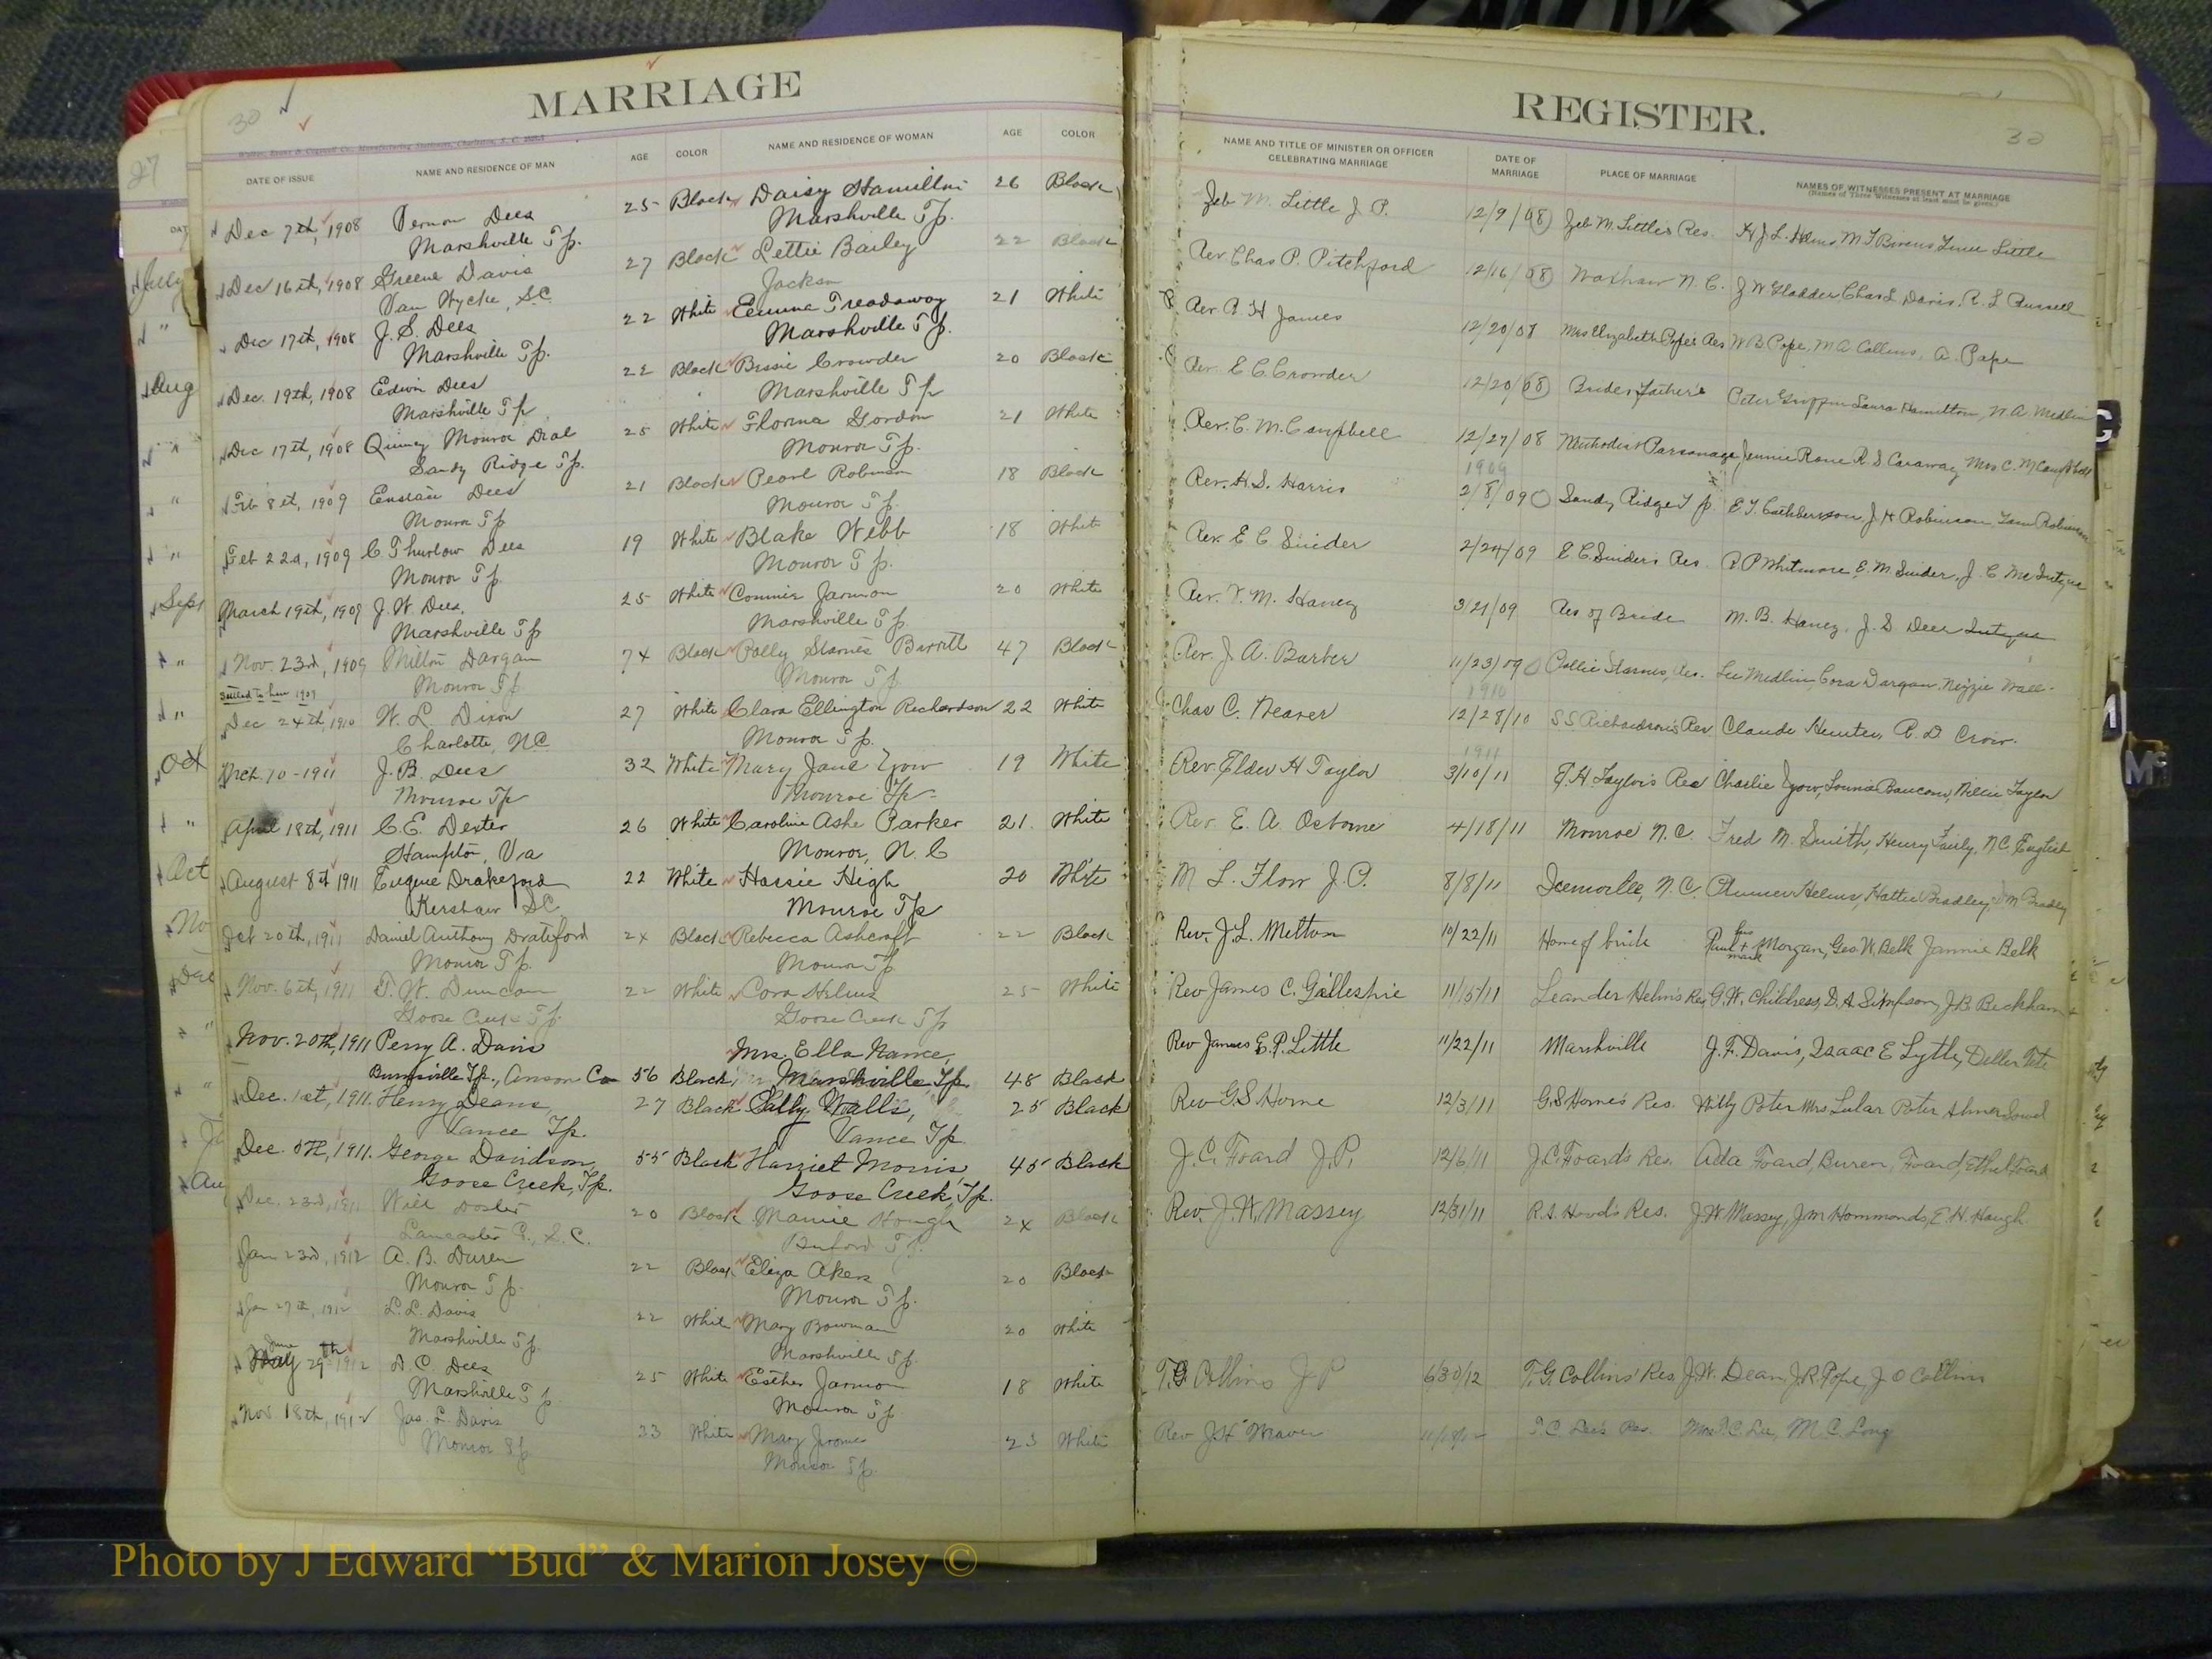 MARRIAGE
30
Walker, Evans & Cogswell Co., Manufacturing Stationers, Charleston, S. C.
DATE OF ISSUE NAME AND RESIDENCE OF MAN AGE COLOR NAME AND RESIDENCE OF WOMAN AGE COLOR
Dec 7th, 1908 Vernon Dees 25 Black Daisy Hamilton 26 Black
Marshville Tp. Marshville Tp.
Dec 16th, 1908 Greene Davis 27 Black Lettie Bailey 22 Black
Van Wycke, S.C. Jackson
Dec 17th, 1908 J. S. Dees 22 White Emma Treadaway 21 White
Marshville Tp. Marshville Tp.
Dec. 19th, 1908 Edwin Dees 22 Black Bessie Crowder 20 Black
Marshville Tp Marshville Tp
Dec 17th, 1908 Quincy Monroe 25 White Florina Gordon 21 White
Sandy Ridge Tp. Monroe Tp.
Feb 8th, 1909 Dees 21 Black Pearl Robinson 18 Black
Monroe Tp Monroe Tp.
Feb 22d, 1909 C Thurlow Dees 19 White Blake Webb 18 White
Monroe Tp. Monroe Tp.
March 19th, 1909 J. W. Dees. 25 White Connie Jarmon 20 White
Marshville Tp Marshville Tp.
Nov. 23rd, 1909 Milton Dargan 74 Black Polly Starnes Barrett 47 Black
Monroe Tp Monroe Tp
Dec 24th, 1910 W. L. Dixon 27 White Clara Ellington Richardson 22 White
Charlotte, N.C. Monroe Tp.
Mch. 10-1911 J. B. Dees 32 White Mary Jane Yow 19 White
Monroe Tp Monroe Tp-
April 18th, 1911 C. E. Dexter 26 White Caroline Ashe Parker 21. White
Hampton, Va Monroe, N. C
August 8th 1911 Eugene Drakeford 22 White Hassie High 20 White
Kershaw SC Monroe Tp
Oct 20th, 1911 Daniel Anthony Drakeford 24 Black Rebecca Ashcraft 22 Black
Monroe Tp. Monroe Tp
Nov. 6th, 1911 T. W. Duncan 22 White Cora Helms 25 White
Goose Creek Tp. Goose Creek Tp
Nov. 20th, 1911 Perry A. Davis Mrs. Ella Nance,
Burnsville Tp., Anson Co 56 Black Marshville, Tp. 48 Black
Dec. 1st, 1911. Henry Deans, 27 Black Sally Walls, 25 Black
Vance Tp. Vance Tp.
Dec. 1911. George Davidson, 55 Black Harriet Morris, 45 Black
Goose Creek, Tp. Goose Creek, Tp.
Dec. 23rd, 1911 Will Doster 20 Black Mamie Hough 24 Black
Lancaster C., S. C. Buford Tp.
Jan 23rd, 1912 A. B. Duren 22 Black Eliza Akers 20 Black
Monroe Tp. Monroe Tp.
Jan 27th, 1912 L. L. Davis 22 White Mary Bowman 20 White
Marshville Tp. Marshville Tp.
June
May 29th 1912 D. C. Dees 25 White Esther Jarmon 18 White
Marshville Tp Monroe Tp
Nov. 18th, 1912 Jas. L. Davis 23 White Mary Jerome 23 White
Monroe Tp Monroe Tp.
REGISTER.
30
NAME AND TITLE OF MINISTER OR OFFICER CELEBRATING MARRIAGE DATE OF MARRIAGE PLACE OF MARRIAGE NAMES OF WITNESSES PRESENT AT MARRIAGE
(Names of Three Witnesses at least must be given.)
Zeb M. Little J. P. 12/9/08 Zeb M. Little's Res. H. J. L. Helms M T Bivens Little
Rev. Chas P. Pitchford 12/16/08 Waxhaw N. C. J W Gladden Chas L Davis. R. L Russell
Rev. A. H James 12/20/08 Mrs Elizabeth Pope's Res W B. Pope, M. A. Collins, A. Pope
Rev. E. C. Crowder 12/20/08 Brides father's Peter Griffin Laura Hamilton, Medlin
Rev. C. M. Campbell 12/27/08 Methodist Parsonage Jennie Rone R. S Caraway Mrs C. M Campbell
1909
Rev. H. S. Harris 2/8/09 Sandy Ridge Tp. E. T. Cuthbertson, J. H Robinson, Robinson
Rev. E C Snider 2/24/09 E C Snider's Res. R. P Whitmore E. M Snider, J. C. McIntyre
Rev. V. M. Haney 3/21/09 Res of Bride M. B. Haney, J. S Dees
Rev. J. A. Barber 11/23/09 Starnes, Res. Lee Medlin, Cora Dargan, Wall.
1910
Chas C. Weaver 12/28/10 S. S. Richardson's Res Claude Hunter, R. D. Crow.
1911
Rev. Elder H Taylor 3/10/11 E. H. Taylor's Res Charlie Yow, Baucom, Taylor
Rev. E. A. Osborne 4/18/11 Monroe N. C. Fred M. Smith, Henry Fairly, N.C. English
M L. Flow J. P. 8/8/11 Icemorlee, N. C. Plummer Helms, Hattie Bradley, M Bradley
Rev. J. L. Melton 10/22/11 Home of bride Paul his + mark Morgan, Geo. W. Belk Jannie Belk
Rev James C. Gillespie 11/5/11 Leander Helms Res. G. W. Childress, D. A. Simpson, J.B. Beckham
Rev James E. P. Little 11/22/11 Marshville J. F. Davis, Isaac E Lytle,
Rev G. S. Horne 12/3/11 G. S Horne's Res. Willy Poter Mrs Lular Poter
J. C. Foard J. P. 12/6/11 J. C. Foard's Res. Ada Foard, Buren, Foard, Ethel Foard
Rev. J. W. Massey 12/31/11 R. S. Hood's Res. J. W. Massey, J. M Hammonds, E. H. Hough
T. G Collins J P 6/30/12 T. G. Collins' Res. J. W. Dean, J. R. Pope J O Collins
Rev J H Weaver 11/18/12 T. C Lee's Res. Mrs T. C. Lee, M. C. Long
27
July
Aug
Sept
Oct
Oct
Photo by J Edward “Bud” & Marion Josey ©